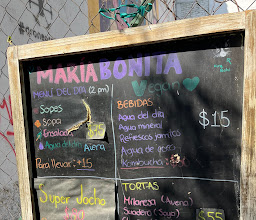 MARIA BONITA
Vegan
MENÚ DEL DÍA (2 pm)
Sopes
Sopa
Ensalada
Agua del día
$55
Para llevar: +15
BEBIDAS
Agua del día
Agua mineral
Refrescos
Agua de
Kombucha
$15
Super Vocho
TORTAS
Milanesa (Avena)
Suadero (Soya)
$55